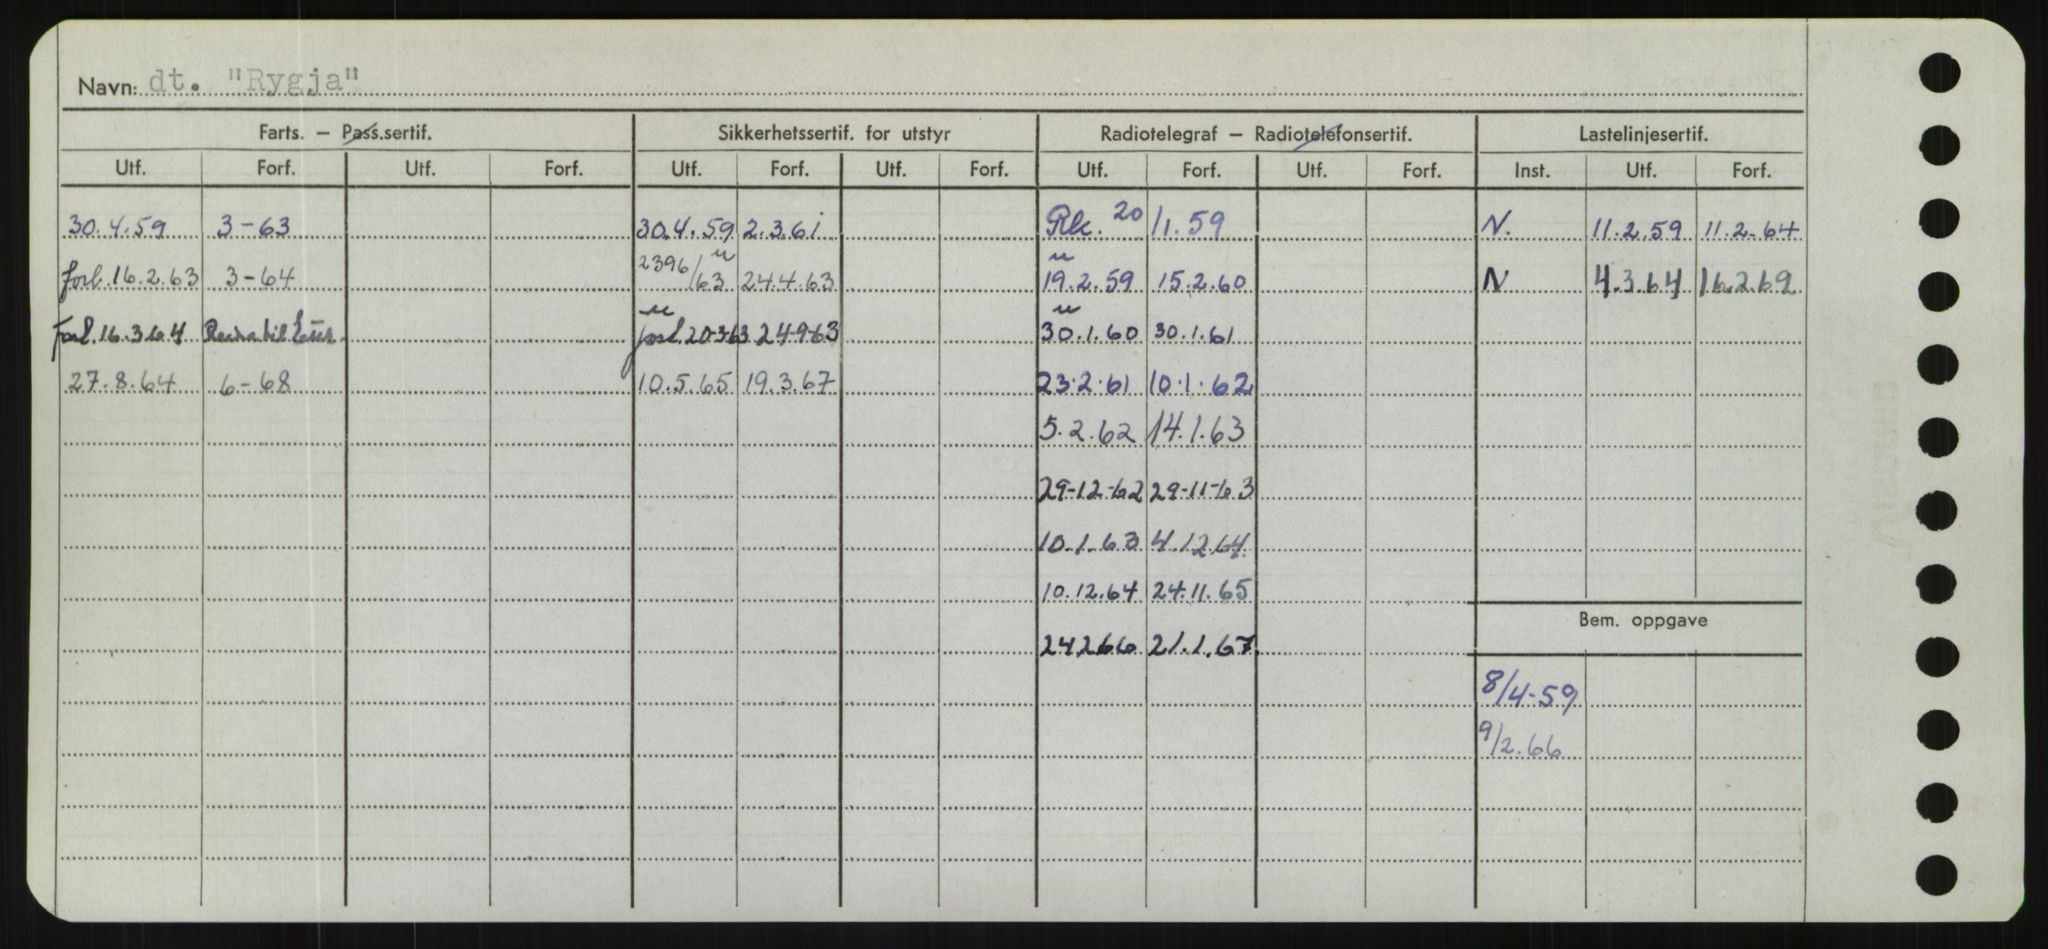 Navn: dt. "Rygja"
Farts. – Pass.sertif. Sikkerhetssertif. for utstyr Radiotelegraf – Radiotelefonsertif. Lastelinjesertif.
Utf. Forf. Utf. Forf. Utf. Forf. Utf. Forf. Utf. Forf. Utf. Forf. Inst. Utf. Forf.
30.4.59 3-63 30.4.59 2.3.61 Rk. 20/1.59 N. 11.2.59 11.2.64
forl. 16.2.63 3-64 2396/63 24.4.63 19.2.59 15.2.60 N 4.3.64 16.2.69
forl. 16.3.64 forl 20-3-63 24-9-63 30.1.60 30.1.61
27.8.64 6-68 10.5.65 19.3.67 23.2.61 10.1.62
5.2.62 14.1.63
29-12-62 29-11-63
10.1.63 4.12.64
10.12.64 24.11.65
24266 21.1.67
Bem. oppgave
8/4-59
9/2.66